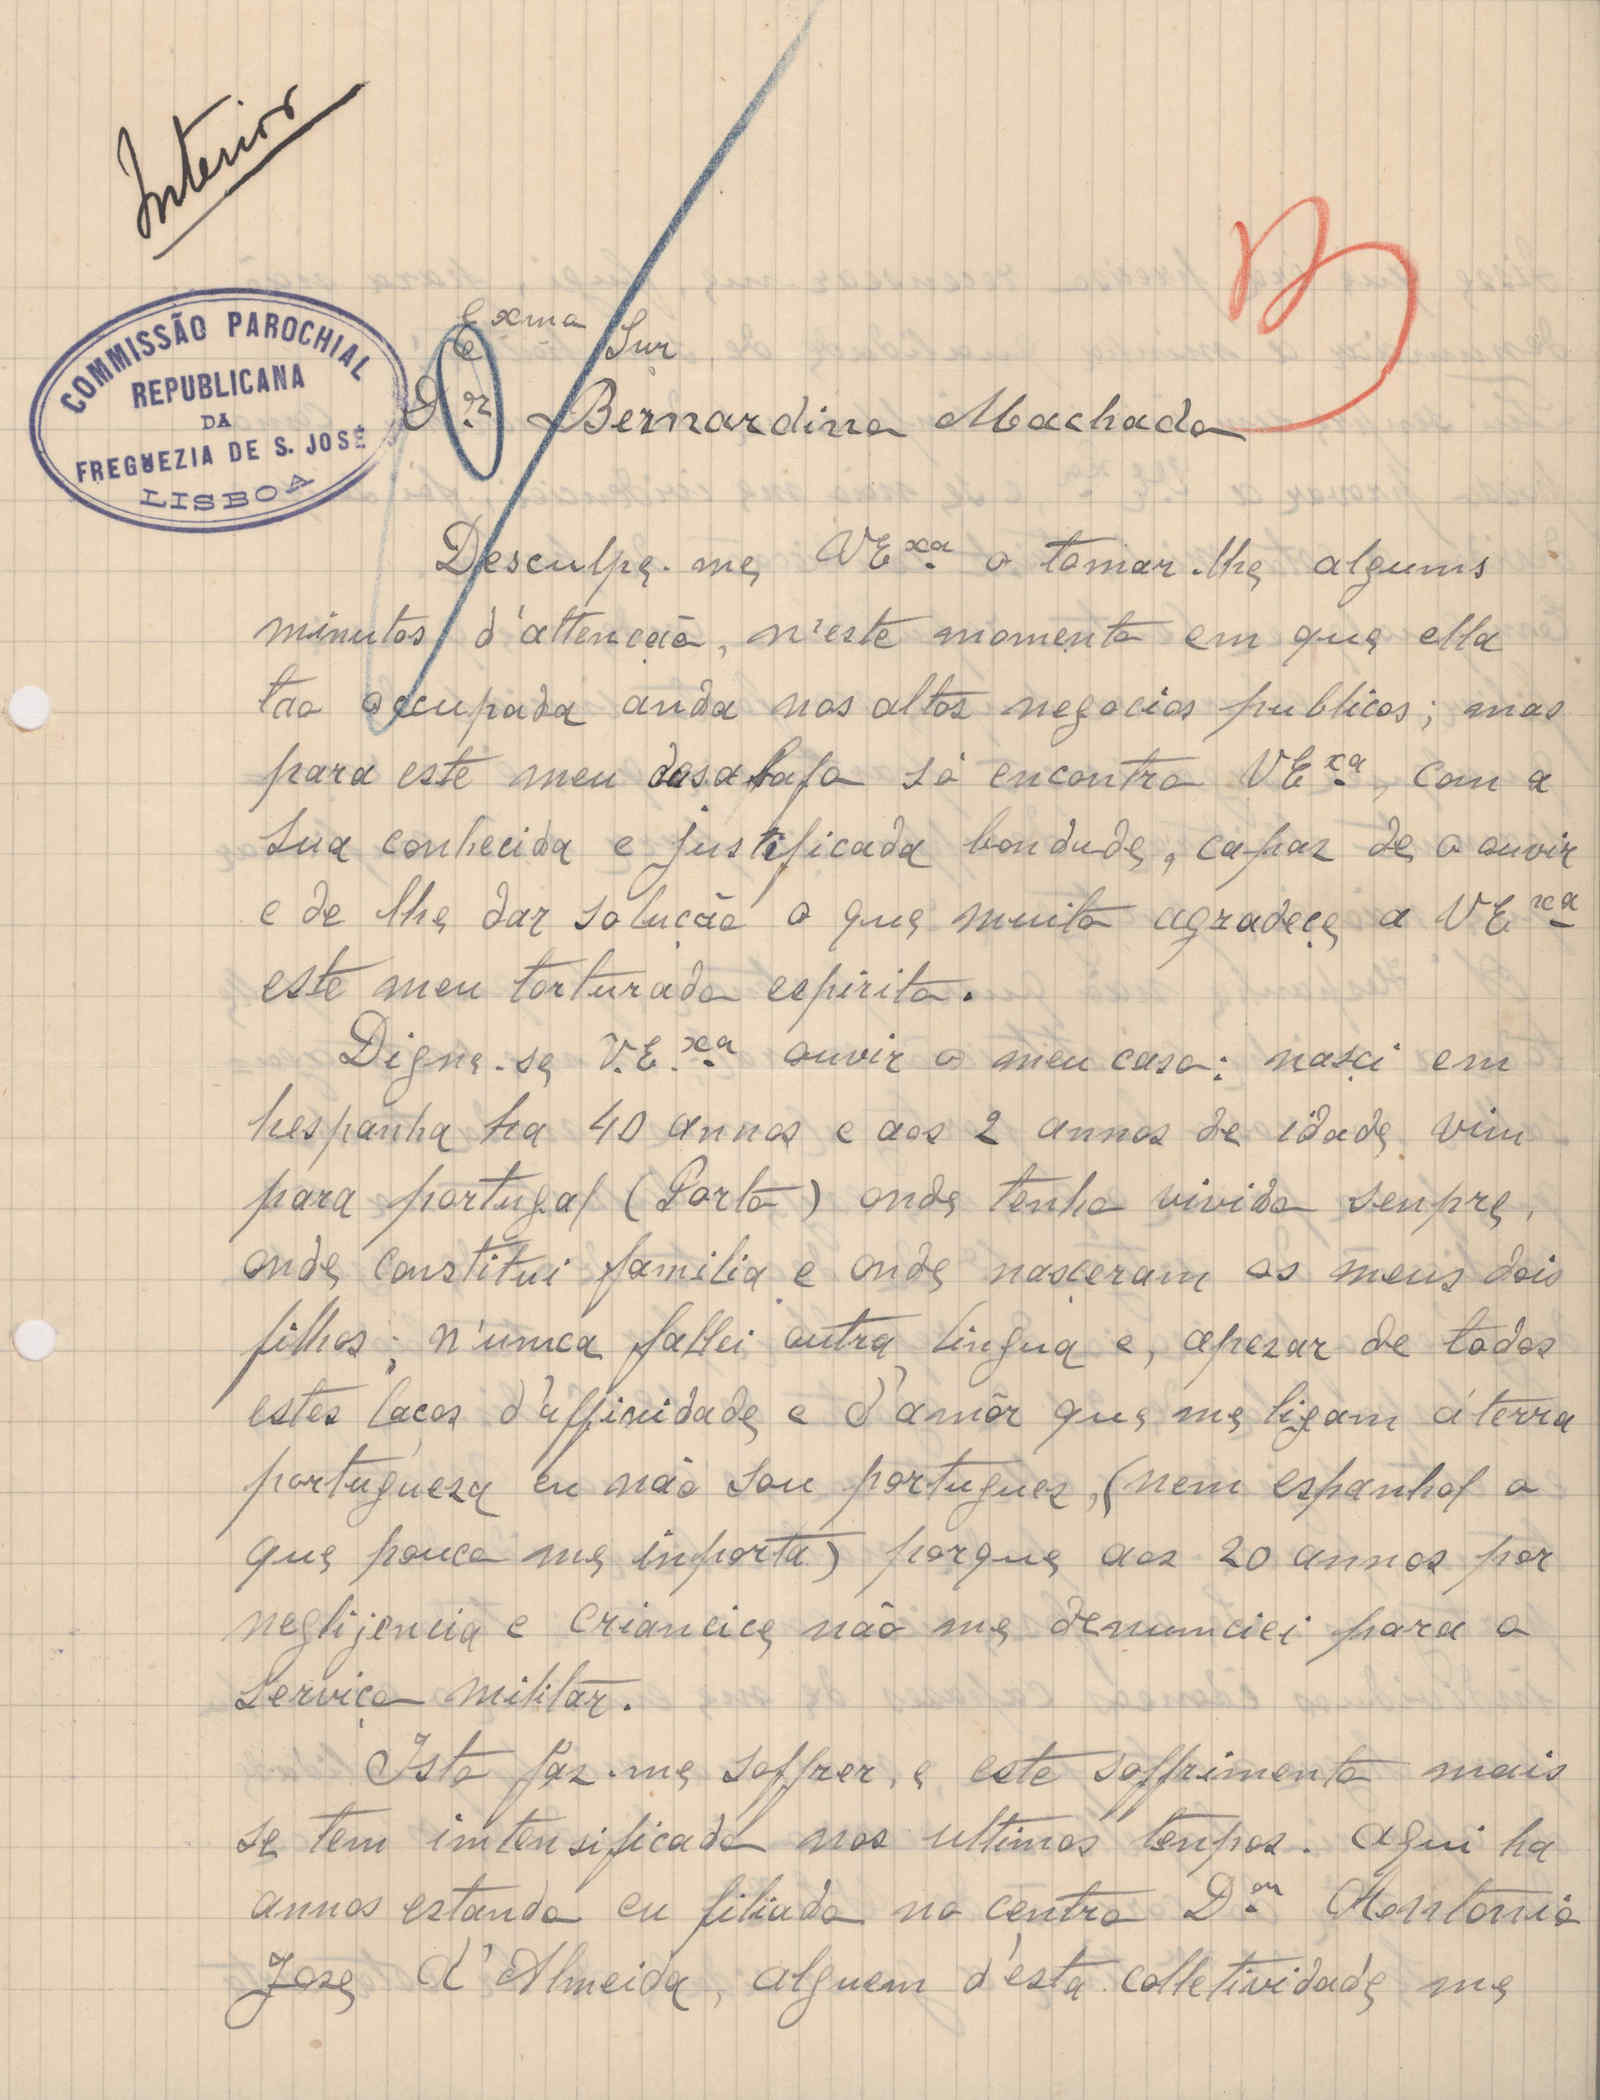 Interior
COMMISSÃO PAROCHIAL
REPUBLICANA
DA
FREGUEZIA DE S. JOSÉ
LISBOA
Exmo Snr
Dr. Bernardino Machado
Desculpe-me VExa. o tomar-lhe alguns
minutos d'attenção, n'este momento em que ella
tão occupada anda nos altos negocios publicos; mas
para este meu desabafo só encontro VExa., com a
sua conhecida e justificada bondade, capaz de o ouvir
e de lhe dar solução o que muito agradece a VExa
este meu torturado espirito.
Digne-se V.E.xa. ouvir o meu caso: nasçi em
hespanha ha 40 annos e aos 2 annos de idade vim
para portugal (Porto) onde tenho vivido senpre,
onde constitui familia e onde nasçeram os meus dois
filhos; n'unca fallei outra lingua e, apezar de todos
estes laços d'affinidade e d'amôr que me ligam á terra
portugueza eu não sou portuguez, (nem espanhol o
que pouco me inporta) porque aos 20 annos por
neglijencia e criancice não me denunciei para o
serviço militar.
Isto faz-me soffrer, e este soffrimento mais
se tem imtensificado nos ultimos tenpos. Aqui ha
annos estando eu filiado no centro Dor. Antonio
José d'Almeida, alguem d'esta colletividade me